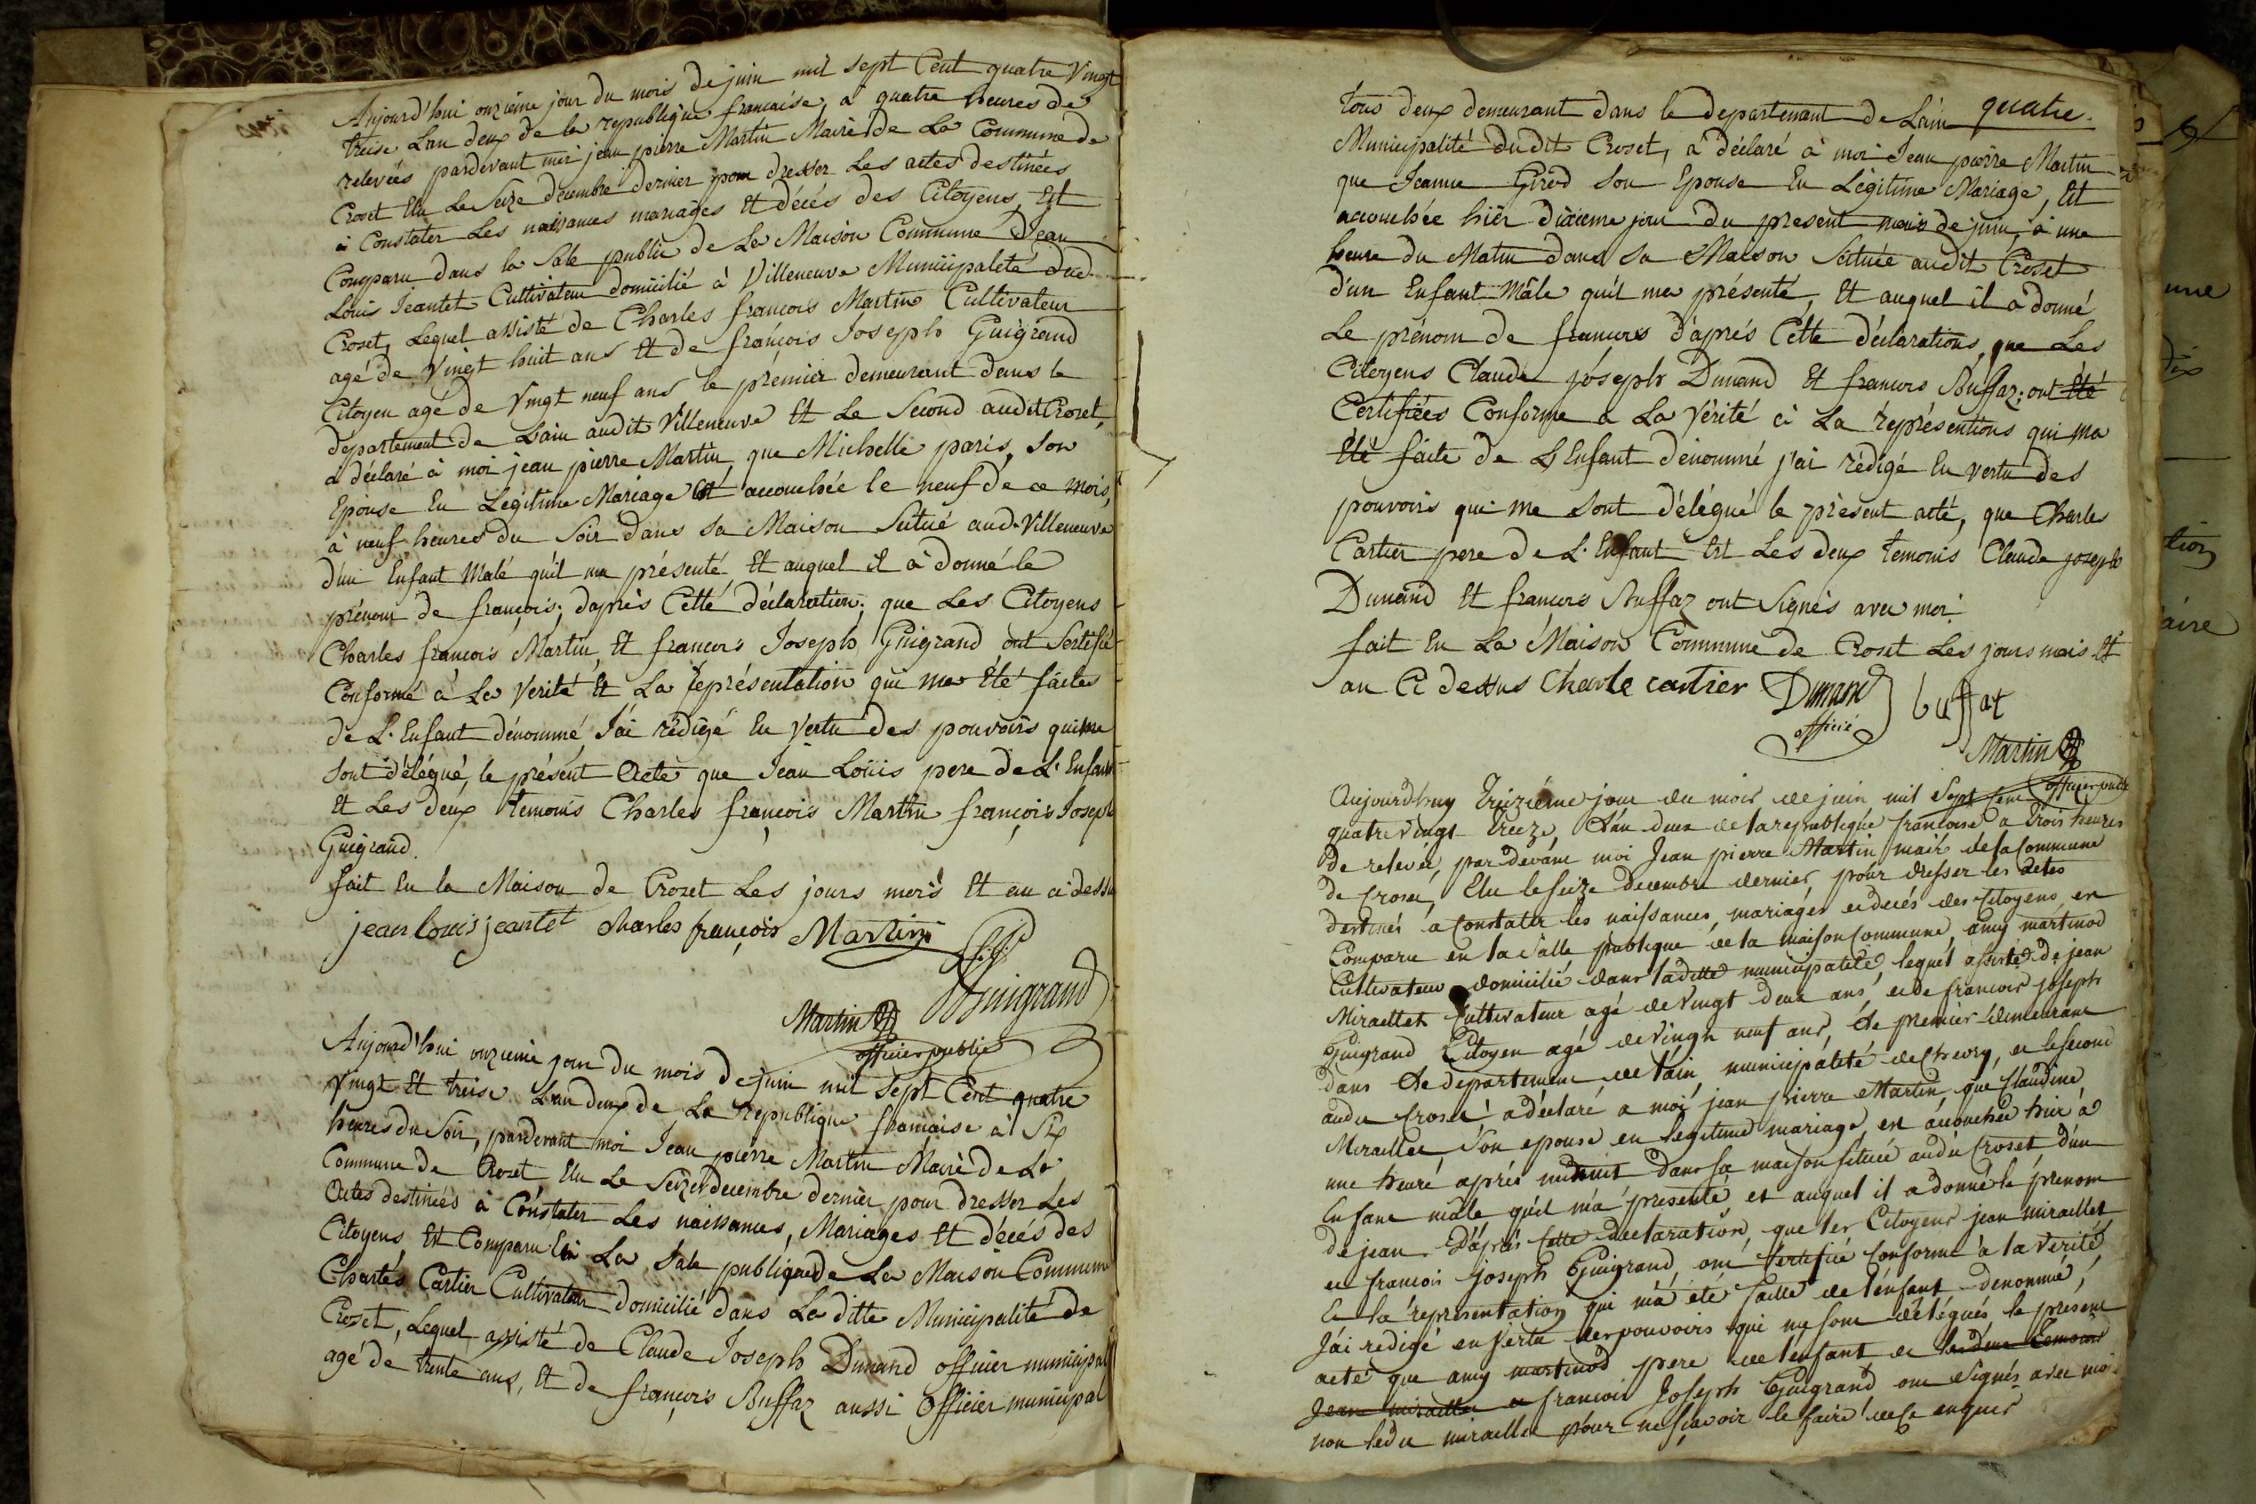 Anjourd'hui onzieme jour du mois de juin mil sept Cent quatre Vingt
treise Lan deux de la republique francaise, a quatre heures de
relevées pardevant moi jean pierre Martin Maire de La Commune de
Croset Elu Le Seize decembre dernier pour dresser Les actes destinées
à Constater Les naissances mariages Et décés des Citoyens, Est
Comparu dans la Sale public de La Maison Commune Jean
Louis Jeantet Cultivateur domicilié à Villeneuve Municipaleté dud.
Croset, Lequel assisté de Charles françois Martin Cultivateur
agé de Vingt huit ans Et de françois Joseph Guigrand
Citoyen agé de Vingt neuf ans le premier demeurant dans le
departement de Lain audit Villeneuve Et Le Second audit Crozet,
a déclaré à moi jean pierre Martin, que Michelle paris, Son
Epouse En Legitime Mariage Est accouchée le neuf de ce mois,
à neuf heures du Soir dans Sa Maison Scitué aud. Villeneuve
d'un Enfant Malé qu'il ma présenté Et auquel il à donné le
prénom de françois; daprès Cette déclaration; que Les Citoyens
Charles françois Martin, Et françois Joseph Guigrand ont Sertifié
Conformé à La Verité Et La représentation qui ma Été faites
de L. Enfant dénommé, J'ai rédigé En Vertu des pouvoirs qui me
Sont délégué, le présent Acte que Jean Loüis pere de L. Enfant
Et Les deux temoins Charles françois Martin françois Joseph
Guigrand.
fait En la Maison de Crozet Les jours mois Et an ci dessu
jean louis jeantet charles françois Martin
Guigrand
Martin
officier public
Anjourd'hui onzieme jour du mois de juin mil sept Cent quatre
Vingt Et treise Lan deux de La republique francaise à Six
heures du Soir, pardevant moi Jean pierre Martin Maire de La
Commune de Crozet, Elu Le Seize decembre dernier pour dresser Les
Actes destinées à Constater Les naissances, Mariages Et décés des
Citoyens Est Comparu En La Sale publique de La Maison Commune
Charles Cartier Cultivateur domicilié dans La ditte Municipalité de
Croset, Lequel assisté de Claude Joseph Dunand officier municipal
agé de trente ans, Et de françois Buffaz aussi Officier municipal
quatre.
Tous deux demeurant dans le departement de Lain
Municipalité dudit Croset, a déclaré à moi Jean pierre Martin
que Jeanne Girod Son Epouse En Légitime Mariage, Est
accouchée hièr dixieme jour du present mois de juin, à une
heure du Matin dans Sa Maison Scituée audit Croset
d'un Enfant Mâle qu'il ma présenté, Et auquel il a donné
Le prénom de francois d'aprés Cette déclarations, que Les
Citoyens Claude joseph Dunand Et francois Buffaz; ont Été
Certifiées Conforme a La Vérité à La représentions qui ma
Été faite de L Enfant dénommé j'ai rédigé En vertu des
pouvoirs qui me Sont délégué le présent acté, que Charles
Cartier pere de L. Enfant Et Les deux temoins Claude joseph
Dunand Et francois Buffaz ont Signés avec moi.
fait En La Maison Commune de Croset Les jours mois Et
an Ci dessus charle cartier Dunand buffaz
officié
Martin
officier public
Aujourdhuy treizième jour du mois de juin mil Sept Cent
quatre vingt treeze, L'an deux de la republique françoise a trois heures
de relevée, par devant moi Jean pierre Martin maire de la Commune
de Croset, Elu le seize decembre dernier, pour dresser les actes
destinés a Constater les naissances, mariages et decés des Citoyens, est
Comparu en la Salle publique de la maison Commune, amy martinod
Cultivateur domicilié dans ladite municipalité, lequel assisté de jean
Miraillet Cultivateur agé de vingt deux ans, et de francois joseph
Guigrand Citoyen agé de vingt neuf ans, le premier demeurant
dans le departement de l'ain, municipaleté de Chevry, et le second
audit Croset a déclaré a moi jean pierre Martin, que Claudine
Miraillet, Son epouse en legitime mariage, est acouchée hier à
une heure aprés minuit dans sa maison situeé audit Croset, d'un
Enfant mâle qu'il m'a presenté et auquel il a donné le prenom
de jean. D'aprés cette declaration, que les Citoyens jean miraillet
et francois joseph Guigrand, ont Certifié Conforme à la verité,
Et la representation qui m'a été faitte de l'enfant denommé,
J'ai redigé en vertu des pouvoirs qui me sont delégués le present
acte que amy martinod pere de l'enfant et les deux temoins
Jean miraillet et francois Joseph Guigrand ont Signés avec moi.
non ledit miraillet pour ne sçavoir le faire de ce enquis